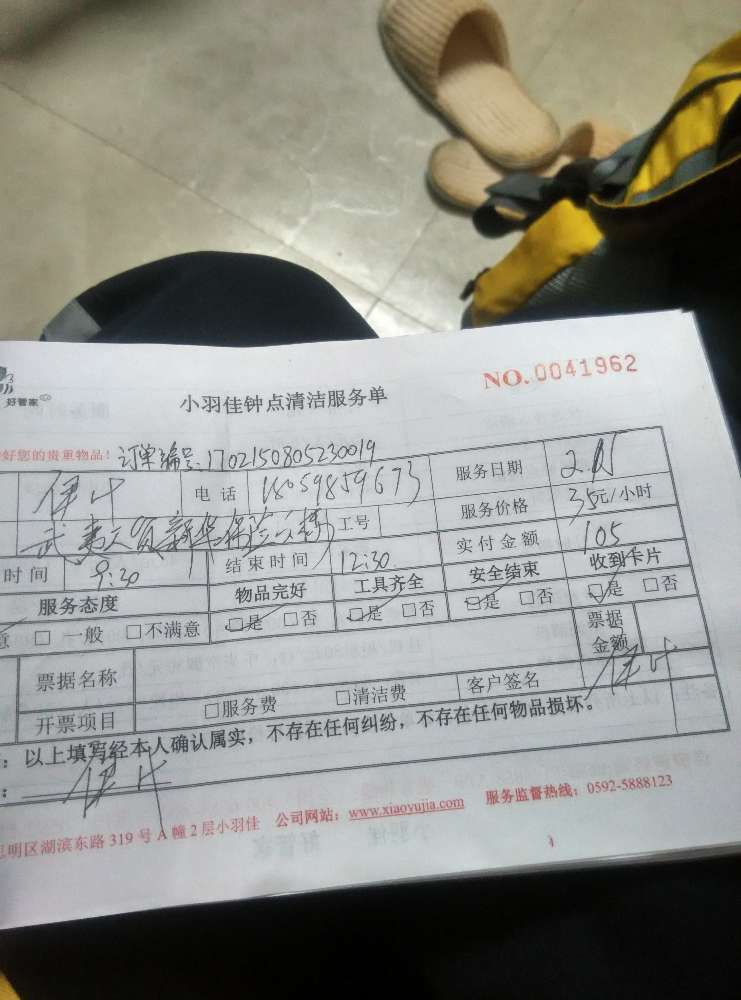 好管家
小羽佳钟点清洁服务单
NO. 0041962
好您的贵重物品! 订单编号:1702150805230019
电话 18059859673 服务日期
工号 服务价格 35元/小时
时间 9:30 结束时间 12:30 实付金额 105
服务态度 物品完好 工具齐全 安全结束 收到卡片
意 □ 一般 □不满意 □是 □否 □是 □否 □是 □否 □是 □否
票据名称 票据金额
开票项目 □服务费 □清洁费 客户签名
: 以上填写经本人确认属实,不存在任何纠纷,不存在任何物品损坏。
:
思明区湖滨东路319号A幢2层小羽佳 公司网站:www.xiaoyujia.com 服务监督热线:0592-5888123